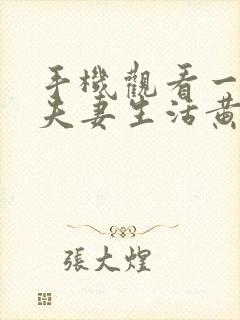 手機觀看一
夫妻生活黃
張大煌